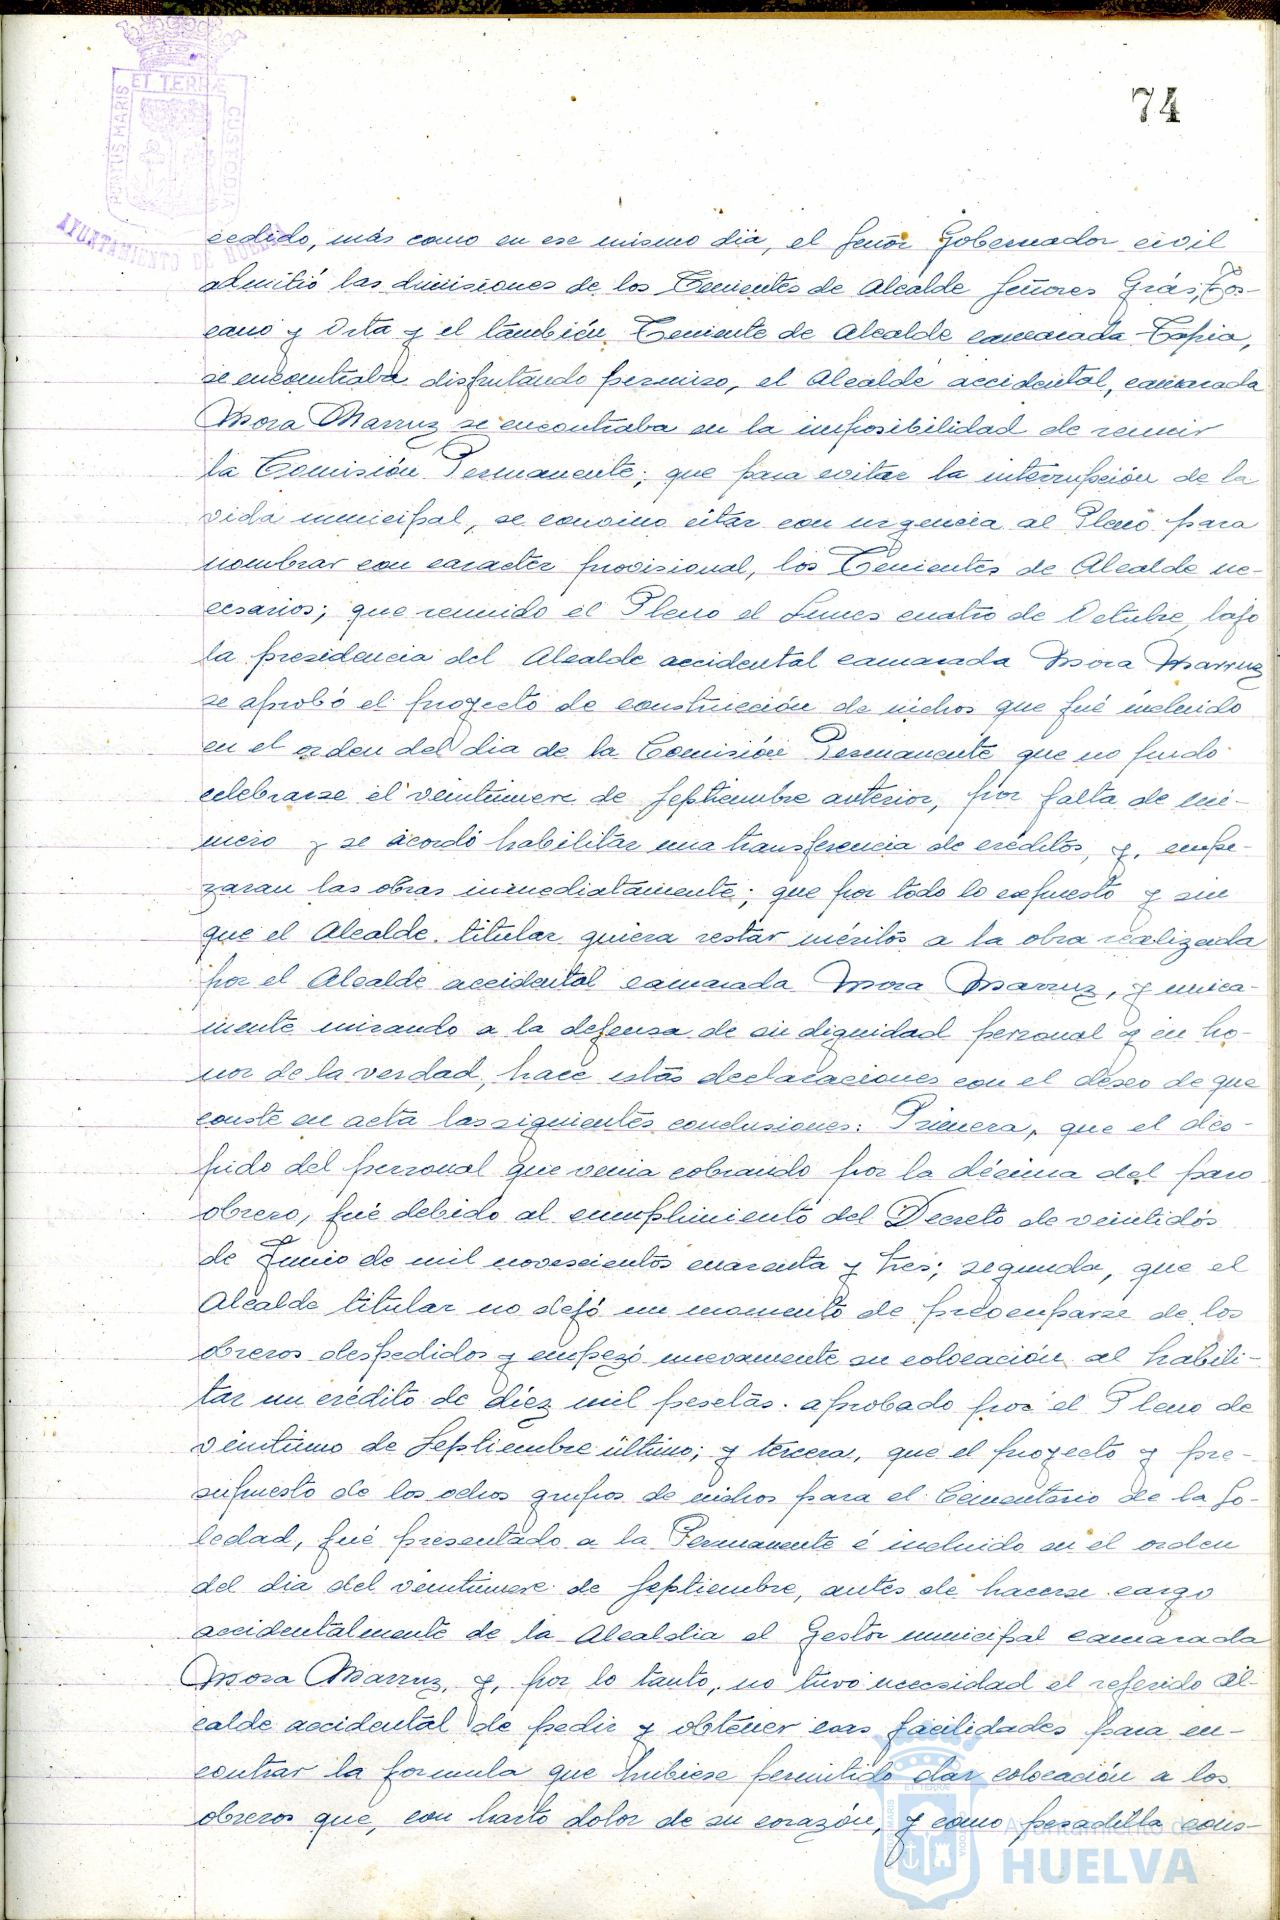 PORTUS MARIS ET TERRE CUSTODIA
AYUNTAMIENTO DE HUELVA
74
cedido, más como en ese mismo dia, el Señor Gobernador civil
admitió las dimisiones de los Tenientes de Alcalde Señores Grás, Tos-
cano y Orta y el también Teniente de Alcalde camarada Tapia,
se encontraba disfrutando permiso, el Alcalde accidental, camarada
Mora Marruz se encontraba en la imposibilidad de reunir
la Comisión Permanente; que para evitar la interrupción de la
vida municipal, se convino citar con urgencia al Pleno para
nombrar con caracter provisional, los Tenientes de Alcalde ne-
cesarios; que reunido el Pleno el Lunes cuatro de Octubre, bajo
la presidencia del Alcalde accidental camarada Mora Marruz
se aprobó el proyecto de construcción de nichos que fué incluido
en el orden del dia de la Comisión Permanente que no pudo
celebrarse el veintinueve de Septiembre anterior, por falta de nú-
mero y se acordó habilitar una transferencia de créditos, y, empe-
zaran las obras inmediatamente; que por todo lo expuesto y sin
que el Alcalde titular quiera restar méritos a la obra realizada
por el Alcalde accidental camarada Mora Marruz, y unica-
mente mirando a la defensa de su dignidad personal y en ho-
nor de la verdad, hace estas declaraciones con el deseo de que
conste en acta las siguientes conclusiones: Primera, que el des-
pido del personal que venia cobrando por la décima del paro
obrero, fué debido al cumplimiento del Decreto de veintidós
de Junio de mil novescientos cuarenta y tres; segunda, que el
Alcalde titular no dejó un momento de preocuparse de los
obreros despedidos y empezó nuevamente su colocación al habili-
tar un crédito de diez mil pesetas aprobado por el Pleno de
veintiuno de Septiembre último; y tercera, que el proyecto y pre-
supuesto de los ochos grupos de nichos para el Cementerio de la So-
ledad, fué presentado a la Permanente é incluido en el orden
del dia del veintinueve de Septiembre, antes de hacerse cargo
accidentalmente de la Alcaldia el Gestor municipal camarada
Mora Marruz, y, por lo tanto, no tuvo necesidad el referido Al-
calde accidental de pedir y obtener esas facilidades para en-
contrar la formula que hubiese permitido dar colocación a los
obreros que, con harto dolor de su corazón, y como pesadilla cons-
Ayuntamiento de
HUELVA